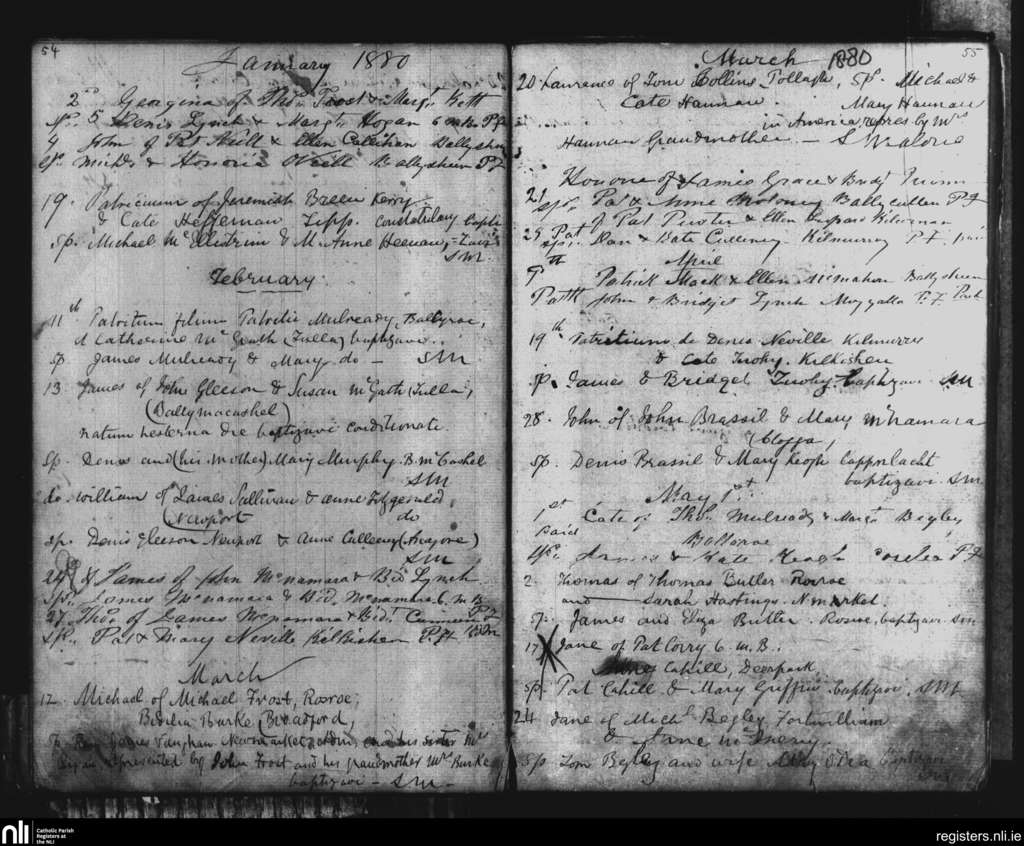 54
January 1880
2 Georgina of Thos Frost & Margt Kett
sps Denis Lynch & Margt Hogan 6 m.b. P.F.
4 John of Pat Neill & Ellen Ballysheen
sps & Honoria O'Neill Ballysheen P.F.
19. Patricium of Jeremiah Breen Kerry
& Cate Heffernan Tipp. Constabulary
sp. Michael & M. Anne Heenan,
SM.
February
11th Patritium filium Patricii Mulready, Ballyroe,
& Catherine Mc Grath (Tulla) baptizavi.
sp James Mulready & Mary do - SM
13. James of John Gleeson & Susan McGath (Tulla),
(Ballymacashel)
natum hesterna die baptizavi conditionate.
Sp. Denis and (his mother) Mary Murphy. B.mCashel
SM
do. William of James Sullivan & Anne Fitzgerald,
(Newport do
sp. Denis Gleeson Newport & Anne Culleeny
SM
24 James of John McNamara & Bid. Lynch
Sps James McNamara & Bid. McNamara 6. m. B
27. Thos of James McNamara & Bid.
sps. Pat & Mary Neville Kilkishen P.F.
March
12. Michael of Michael Frost, Rooroe,
Burke (Broadford,
Vaughan Newmarket and his sister
represented by John Frost and his grandmother Mrs Burke
baptizavi - SM -
55
March 1880
20 Lawrence of Tom Collins Pollagh, Sps. Michael &
Cate Hannan. Mary Hannan
in America repres by Mrs
Hannan Grandmother - S Malone
Honora of James Grace & Bridt Quinn
21 sps. Pat & Anne Moloney Ballycullen P.F
29 Pat of Pat & Ellen
sps. Dan & Kate Culleney Kilmurry P.F.
April
9th Patrick Mack & Ellen McMahon Ballysheen
John & Bridget Lynch Moygalla P.F.
19th Patritium de Denis Neville Kilmurry
& Cate Twohy. Kilkishen
sp. James & Bridget Twohy. baptizavi SM
28. John of John Brassil & Mary McNamara
(Clogga,
sp. Denis Brassil & Mary Keogh
baptizavi. SM
May 1st.
1st Cate of Thos. Mulready & Margt Begley
paid Ballyroe
sps James & Kate Keogh P.F.
2. Thomas of Thomas Butler Rooroe
and Sarah Hastings. N.markel.
sp. James and Eliza Butler. Rooroe. baptizavi. SM
17 Jane of Pat Corry 6. m. B.
Cahill, Deerpark
sp. Pat Cahill & Mary Griffin baptizavi. SM
24 Jane of Michl Begley Fortwilliam
& Anne McInerny.
sp Tom Begley and wife Mary O'Dea baptizavi
SM
nli Catholic Parish
Registers at
the NLI
registers.nli.ie